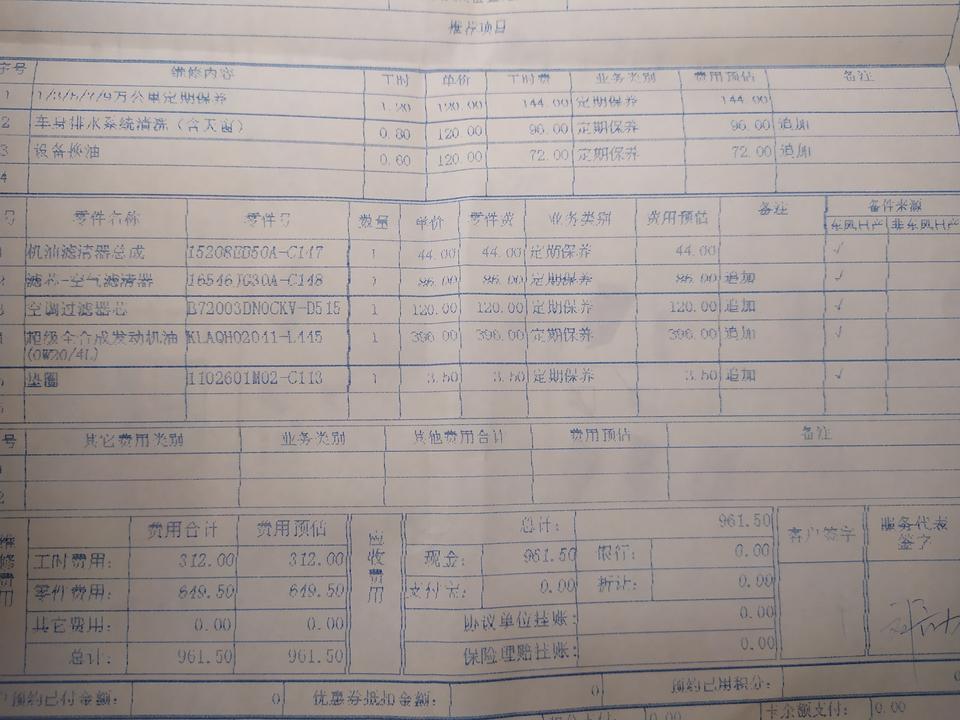 推荐项目
序号 维修内容 工时 单价 工时费 业务类别 费用预估 备注
1 1/3/5/7/9万公里定期保养 1.20 120.00 144.00 定期保养 144.00
2 车身排水系统清洗（含天窗） 0.80 120.00 96.00 定期保养 96.00 追加
3 设备换油 0.60 120.00 72.00 定期保养 72.00 追加
4
号 零件名称 零件号 数量 单价 零件费 业务类别 费用预估 备注 备件来源
东风日产 非东风日产
机油滤清器总成 15208ED50A-C147 1 44.00 44.00 定期保养 44.00 √
滤芯-空气滤清器 16546JG30A-C148 1 86.00 86.00 定期保养 86.00 追加 √
空调过滤器芯 B72003DN0CKV-D515 1 120.00 120.00 定期保养 120.00 追加 √
超级全合成发动机油 KLAQH02011-L445 1 396.00 396.00 定期保养 396.00 追加 √
(0W20/4L)
垫圈 1102601M02-C113 1 3.50 3.50 定期保养 3.50 追加 √
号 其它费用类别 业务类别 其他费用合计 费用预估 备注
维修费用 费用合计 费用预估 应收费用 总计: 961.50 客户签字 服务代表签字
工时费用: 312.00 312.00 现金: 961.50 银行: 0.00
零件费用: 649.50 649.50 支付宝: 0.00 折让: 0.00
其它费用: 0.00 0.00 协议单位挂账: 0.00
总计: 961.50 961.50 保险理赔挂账: 0.00
预约已付金额: 0 优惠券抵扣金额: 0 预约已用积分: 0
积分支付: 0.00 卡余额支付: 0.00